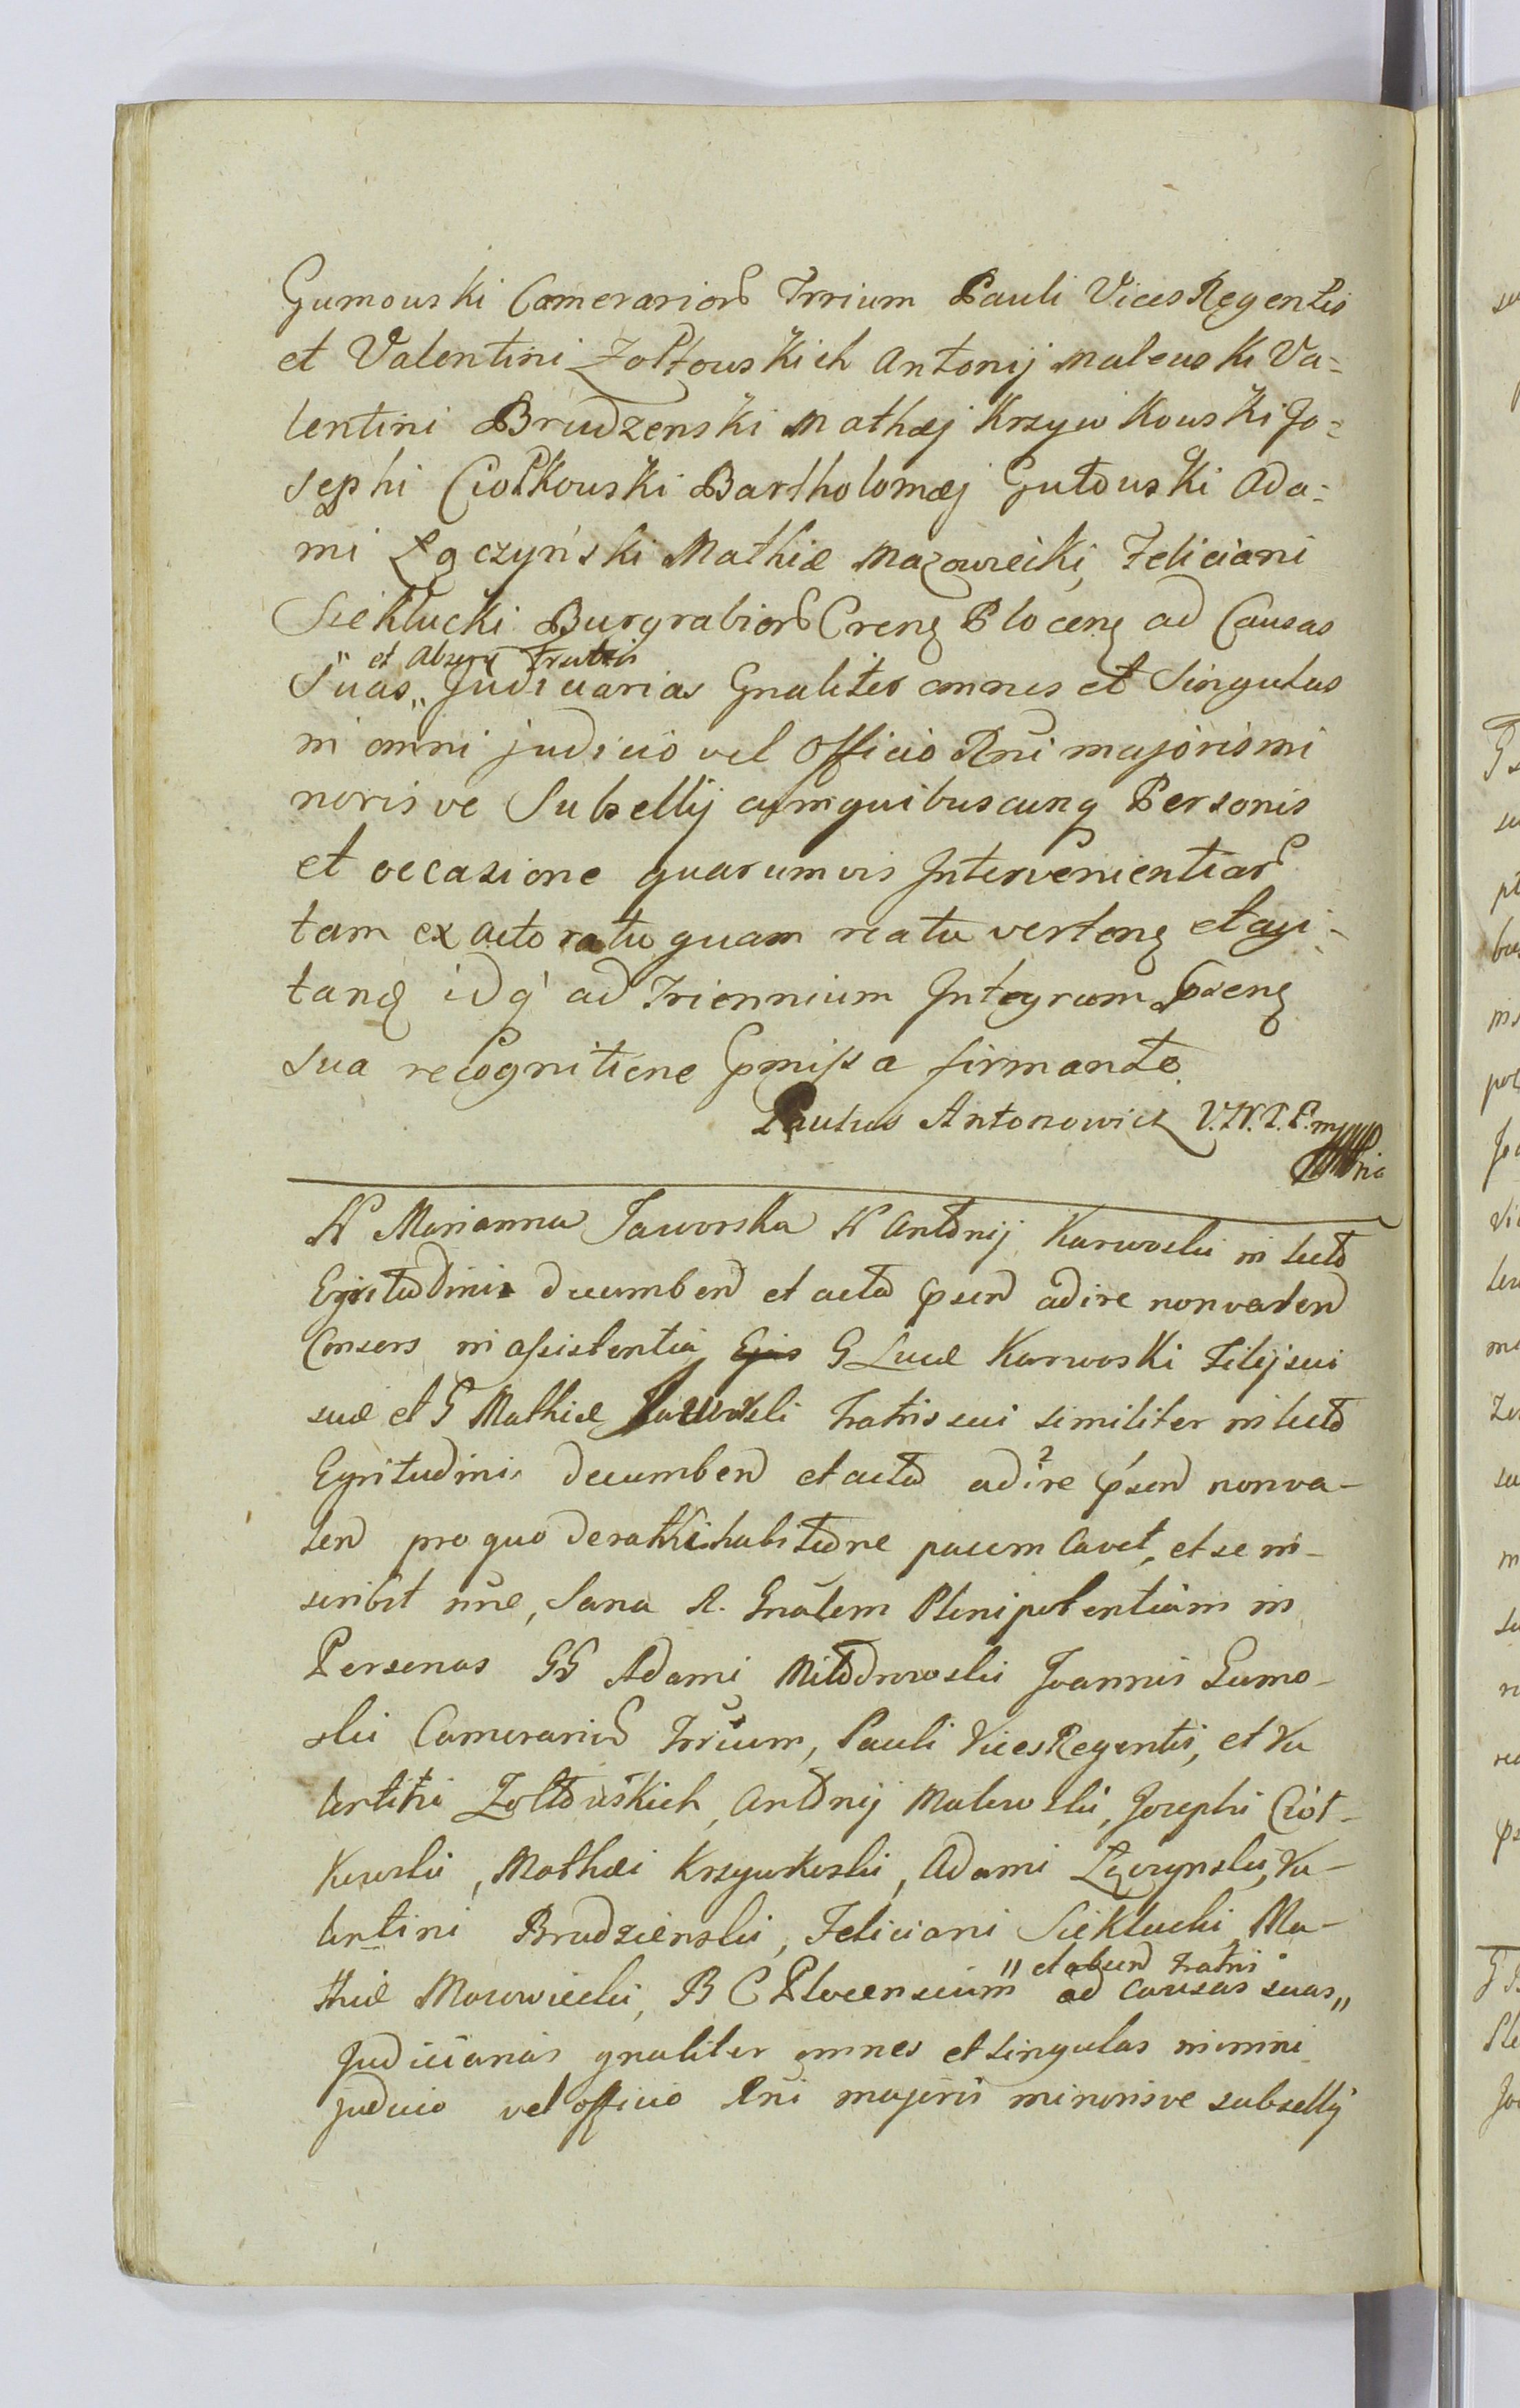 Gumowski Camerarior Trrium Pauli Vices Regentis
et Valentini Zołtowskich Antonij Malewski Va=
lentini Brudzenski Mathæj Krzywkowski Jo=
sephi Ciołkowski Bartholomæj Gutowski Ada=
mi Łączyński Mathiæ Mazowiecki, Feliciani
Siekłucki Burgrabior Cren Plocen ad Causas
et Absen Fratris
Suas „ Judiciarias Gnaliter omnes et Singulas
in omni judicio vel Officio Rni majoris mi
noris ve Subsellij cum quibuscunq Personis
et occasione quarumvis Intervenientiar
tam ex actoratu quam reatu verten et agi=
tan idq ad Triennium Integrum Psen
sua recognitione Pmissa firmante
Paulus Antonowicz V.N.T.P. mp
N Marianna Jaworska N Antonij Karwoski in lecto
Egritudinis decumben et acta psen adire non valen
Consors in assistentia G Lucæ Karwoski Filij sui
suæ et G Mathiæ Jaworski Fratris sui similiter in lecto
Egritudinis decumben et acta adire psen non va-
len pro quo de rathihabitione pacem Cavet, et se in-
scribit nne, Sana R. Gnalem Plenipotentiam in
Personas GG Adami Miłodrowski Joannis Gumo-
ski Camerarior Trrium, Pauli Vices Regentis, et Va
lentini Zołtowskich, Antonij Malewski, Josephi Ciół-
kowski, Mathæi Krzywkoski, Adami Łączynski, Va-
lentini Brudzienski, Feliciani Siekłucki Ma-
et absen Fratris
thiæ Mazowiecki, B C Plocensium ad causas suas „
Judiciarias gnaliter omnes et singulas in omni
judicio vel officio Rni majoris minorisve subsellij